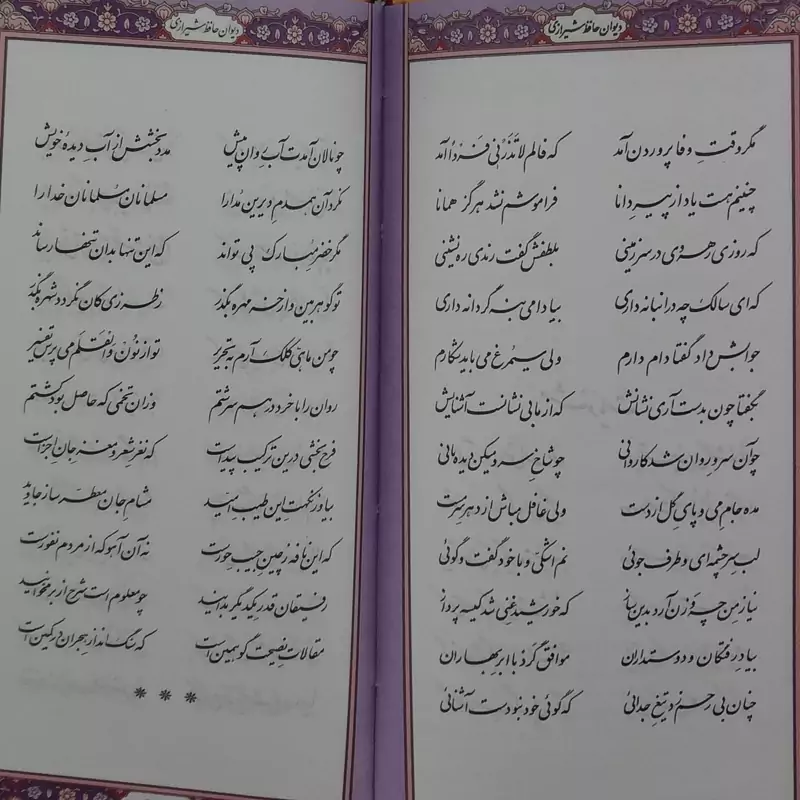 دیوان حافظ شیرازی
مگر وقتِ وفا پروردن آمد که فالم لاتَذَرْنی فَرداً آمد
چنینم هست یاد از پیرِ دانا فراموشم نشد هرگز همانا
که روزی رهروی در سرزمینی بلطفش گفت رندی ره نشینی
که ای سالک چه در انبانه داری بیا دامی بنه گر دانه داری
جوابش داد گفتا دام دارم ولی سیمرغ می باید شکارم
بگفتا چون بدست آری نشانش که از ما بی نشانست آشیانش
چو آن سروِ روان شد کاروانی چو شاخِ سرو میکن دیده بانی
مده جامِ می و پایِ گل از دست ولی غافل مباش از دهرِ سرمست
لبِ سرچشمه ای و طرفِ جوئی نمِ اشکی و با خود گفت و گوئی
نیازِ من چه وزن آرد بدین ساز که خورشیدِ غنی شد کیسه پرداز
بیادِ رفتگان و دوستداران موافق گرد با ابرِ بهاران
چنان بی رحم زد تیغِ جدائی که گوئی خود نبودست آشنائی
دیوان حافظ شیرازی
چو نالان آمدت آبِ روان پیش مدد بخشش از آبِ دیدهٔ خویش
نکرد آن همدمِ دیرین مُدارا مسلمانان مُسلمانان خدا را
مگر خضرِ مُبارک پی تواند که این تنها بدان تنها رساند
تو گوهر بین و از خر مهره بگذر ز طرزی کان نگردد شهره بگذر
چو من ماهیّ کلک آرم به تحریر تو از نوُن وَالقَلَم می پرس تفسیر
روان را با خرد در هم سرشتم وزان تخمی که حاصل بود کِشتم
فرح بخشی درین ترکیب پیداست که نغزِ شعر و مغزِ جانِ اجزاست
بیا وز نکهتِ این طیبِ امّید مشامِ جان معطّر ساز جاوید
که این نافه ز چینِ جیبِ حورست نه آن آهو که از مردم نفورست
رفیقان قدرِ یکدیگر بدانید چو معلوم است شرح از بر مخوانید
مقالاتِ نصیحت گو همین است که سنگ اندازِ هجران در کمین است
* * *